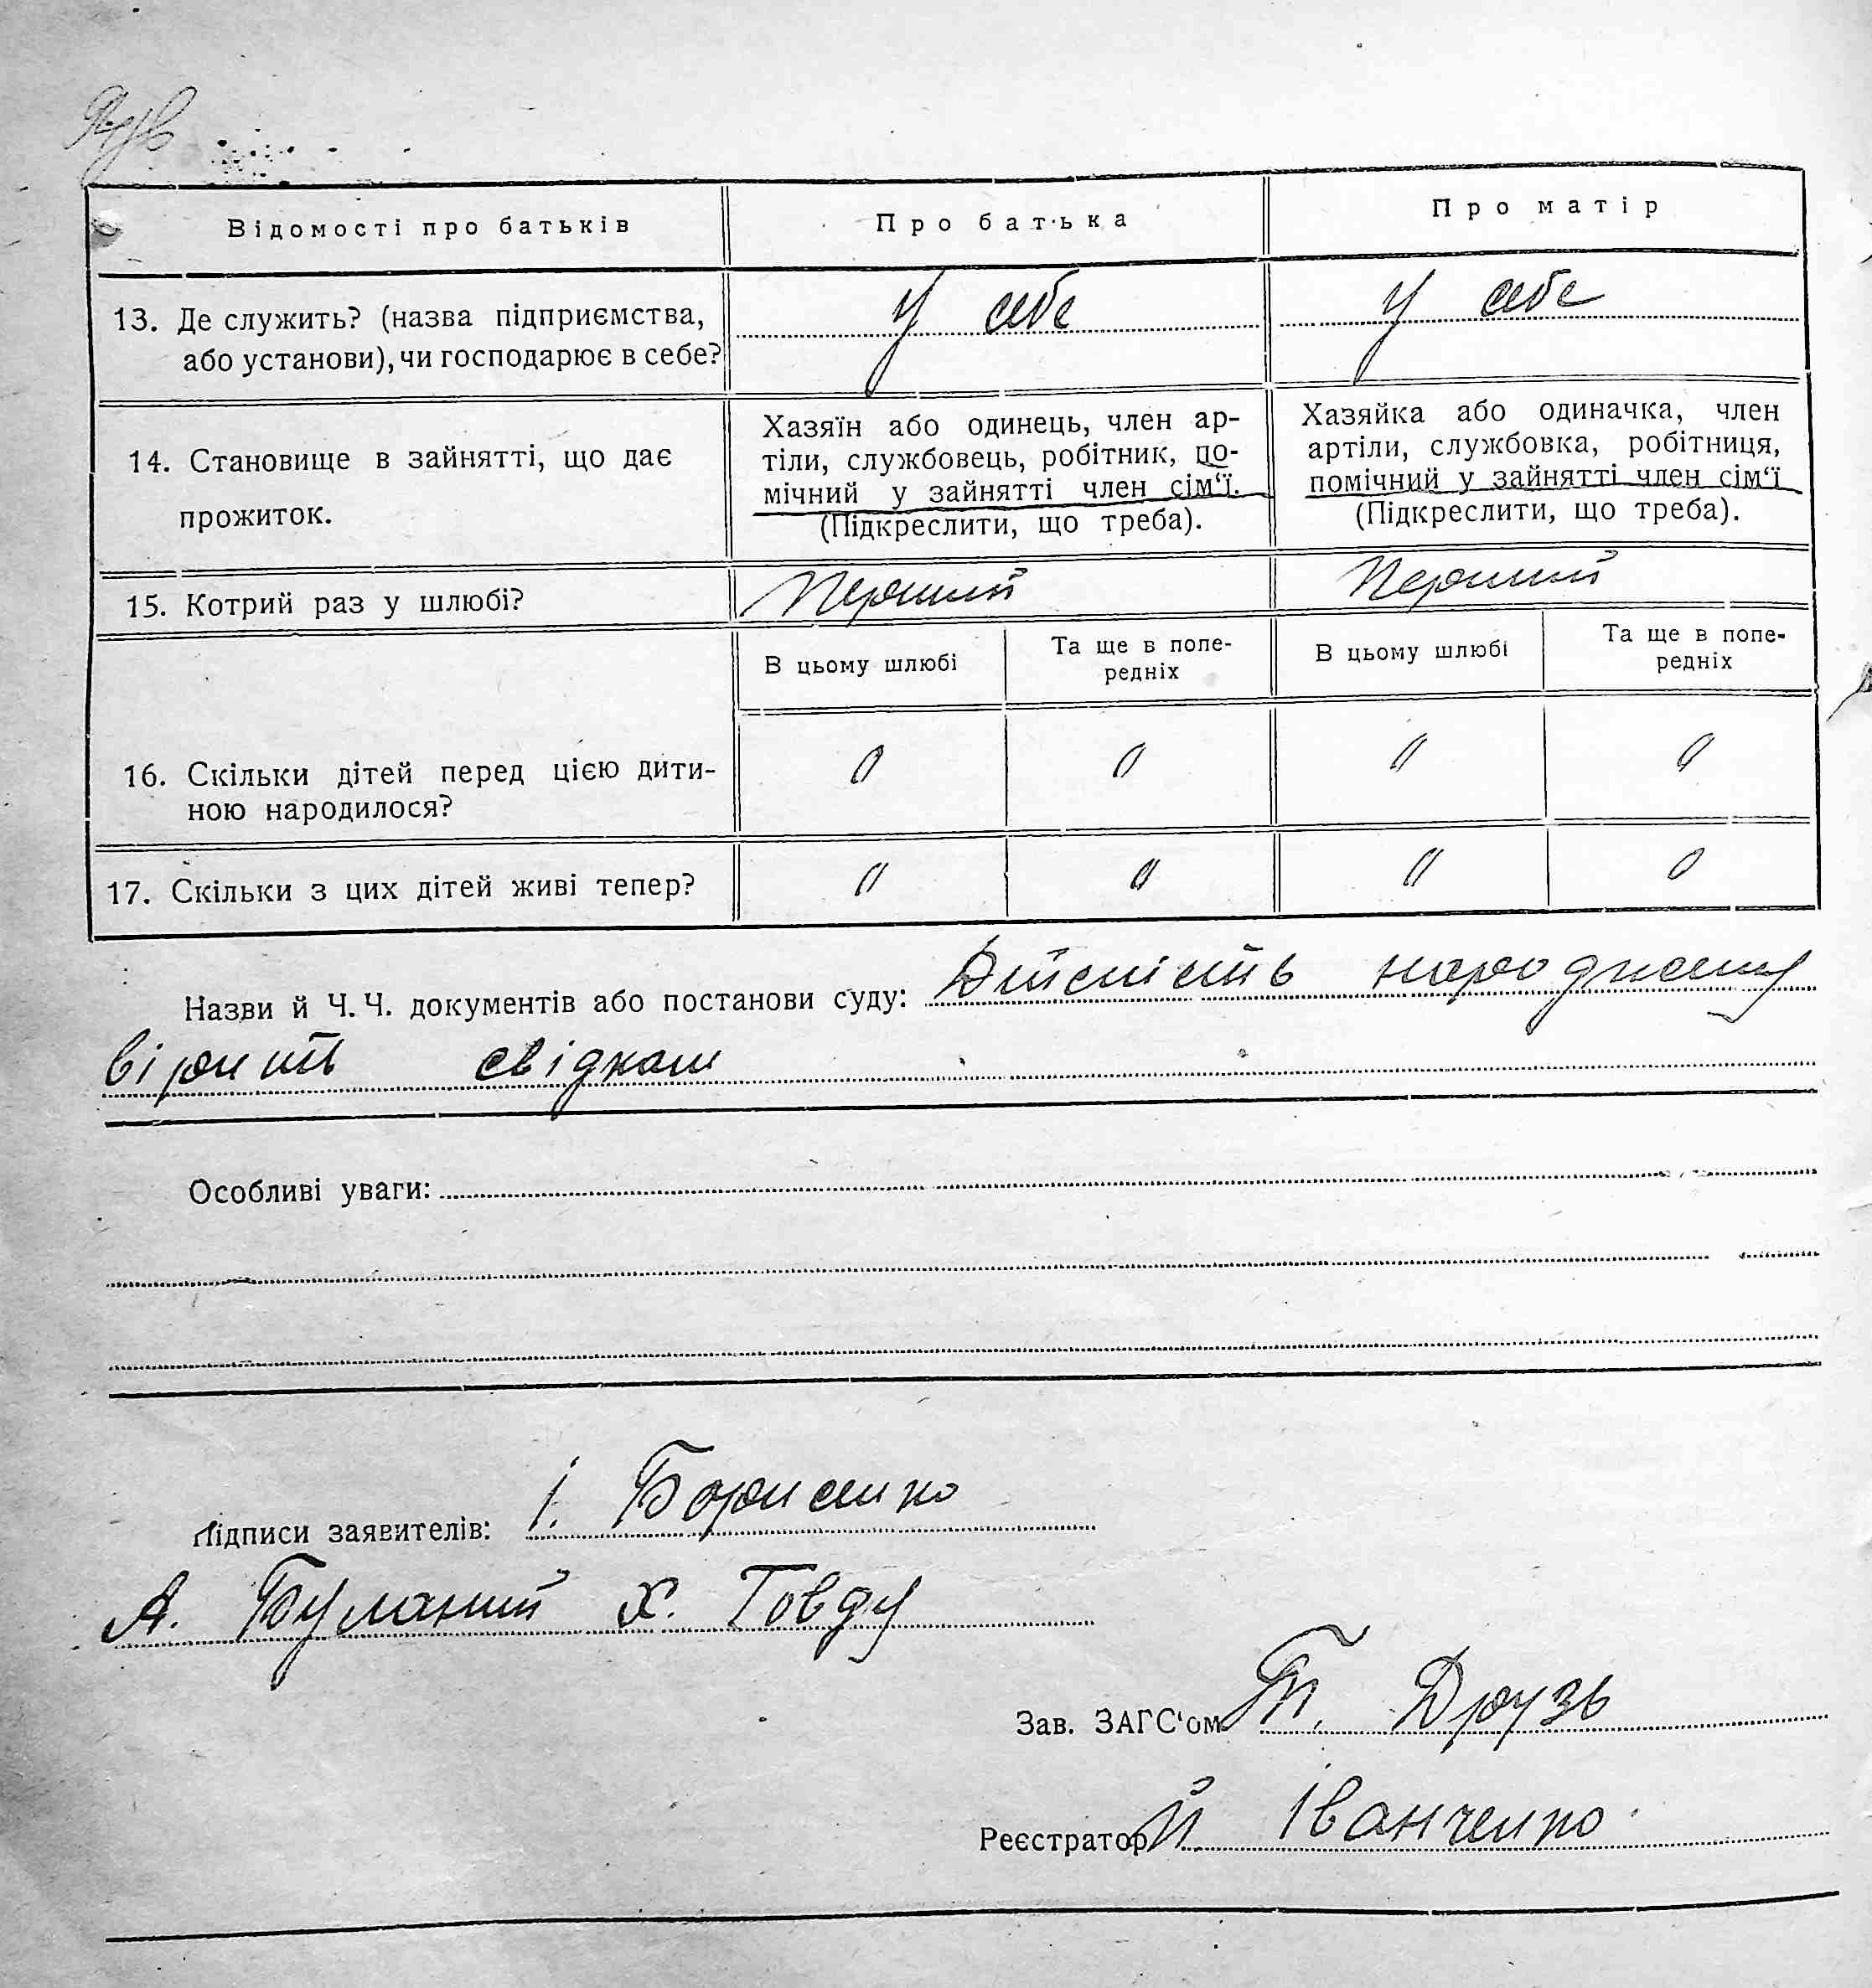 Відомості про батьків
Про батька
Про матір
13. Де служить? (назва підприємства,
або установи), чи господарює в себе?
У себе
У себе
14. Становище в зайнятті, що дає
прожиток.
Хазяїн або одинець, член ар-
тіли, службовець, робітник, по-
мічний у зайнятті член сім‘ї.
(Підкреслити, що треба).
Хазяйка або одиначка, член
артіли, службовка, робітниця,
помічний у зайнятті член сім‘ї
(Підкреслити, що треба).
15. Котрий раз у шлюбі?
Перший
Перший
В цьому шлюбі
Та ще в попе-
редніх
В цьому шлюбі
Та ще в попе-
редніх
16. Скільки дітей перед цією дити-
ною народилося?
0 0 0 0
17. Скільки з цих дітей живі тепер?
0 0 0 0
Назви й Ч. Ч. документів або постанови суду: Дійсність
свідками
Особливі уваги:
Підписи заявителів: І. Борисенко
А. Буланий Х. Говду
Зав. ЗАГС‘ом Т. Друзь
Реєстратор Й. Іванченко